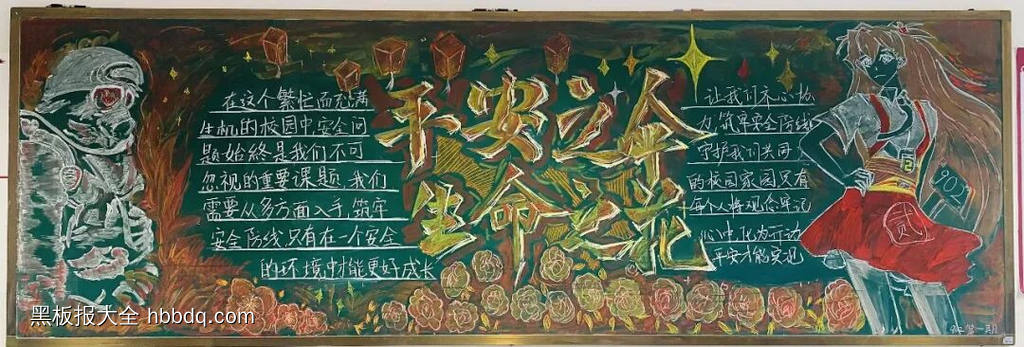 平安之伞
生命之花
在这个繁忙而充满
生机的校园中安全问
题始终是我们不可
忽视的重要课题,我们
需要从多方面入手,筑牢
安全防线,只有在一个安全
的环境中才能更好成长
让我们齐心协
力,筑牢安全防线
守护我们共同
的校园家园只有
每个人将观念牢记
心中,化为行动
平安才能实现
902
贰
黑板报大全 hbbdq.com